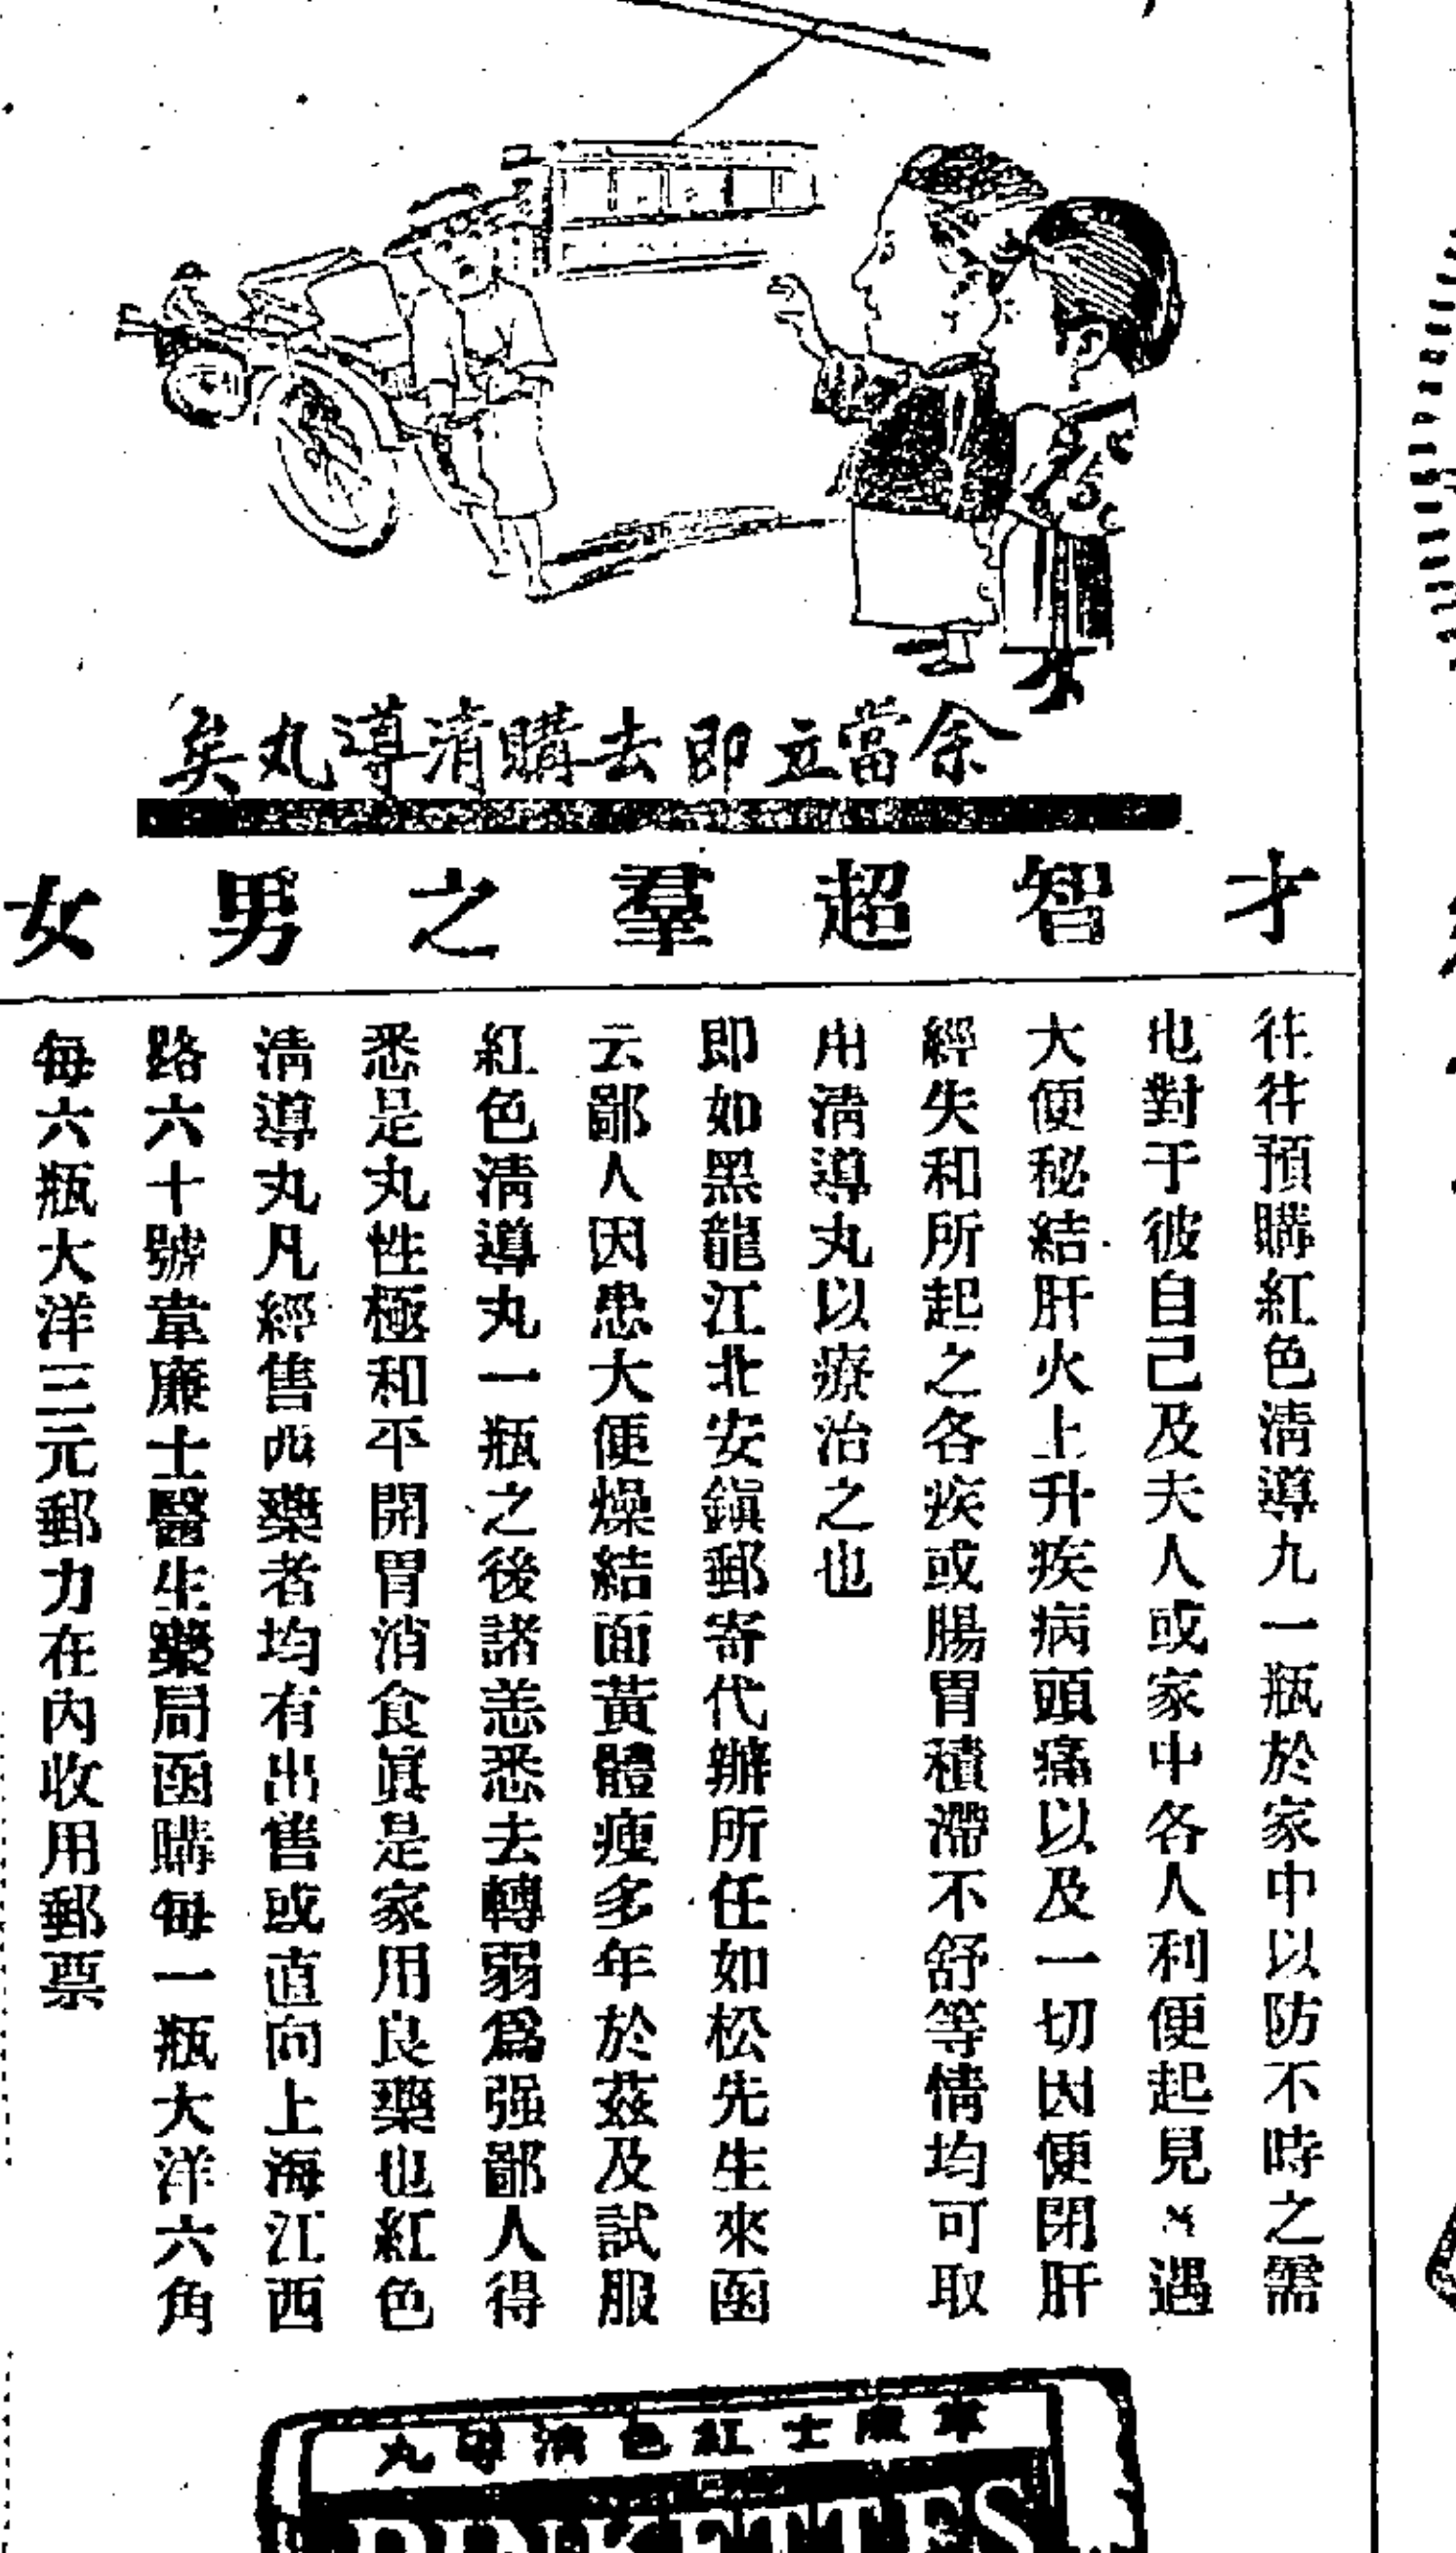 余當立即去購清導丸矣
才智超羣之男女
往往預購紅色淸導丸一瓶於家中以防不時之需
也對于彼自己及夫人或家中各人利便起見遇
大便秘結肝火上升疾病頭痛以及一切因便閉肝
經失和所起之各疾或腸胃積滯不舒等情均可取
用淸導丸以療治之也
卽如黑龍江北安鎭郵寄代辦所任如松先生來函
云鄙人因患大便燥結面黃體瘦多年於茲及試服
紅色淸導丸一瓶之後諸恙悉去轉弱爲强鄙人得
悉是丸性極和平開胃消食眞是家用良藥也紅色
淸導丸凡經售西藥者均有出售或直向上海江西
路六十號韋廉士醫生藥局函購每一瓶大洋六角
每六瓶大洋三元郵力在內收用郵票
韋廉士紅色淸導丸
PINKETTES